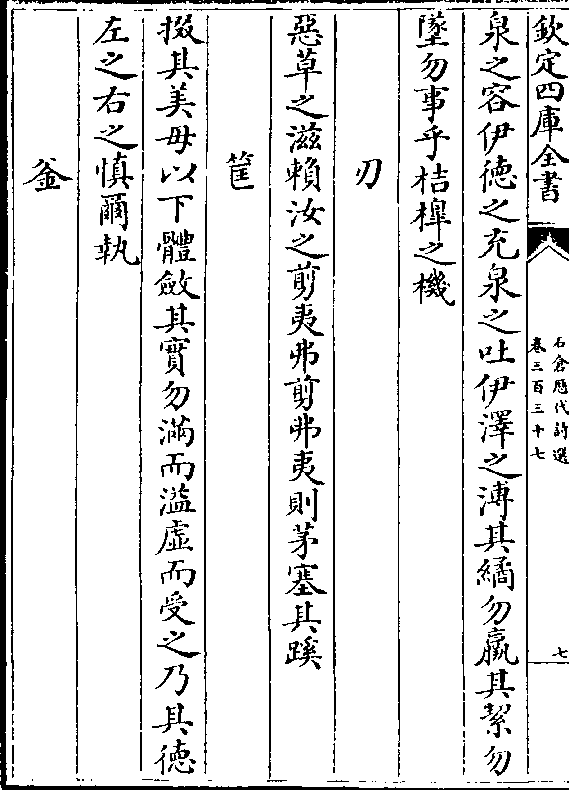 欽定四庫全書
石倉歷代詩選
卷三百三十七
七
泉之容伊德之充泉之吐伊澤之溥其繘勿羸其絜勿
墜勿事乎桔橰之機
刃
惡草之滋賴汝之剪夷弗剪弗夷則茅塞其蹊
筐
掇其美毋以下體斂其實勿滿而溢虛而受之乃其德
左之右之慎爾執
釜